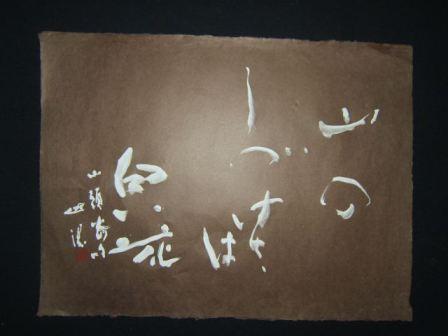 山の
しづけさ
は
白い花
山頭火句